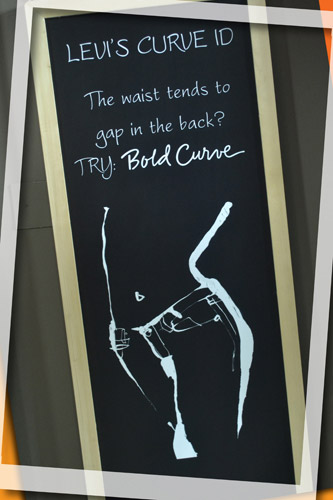 LEVI'S CURVE ID
The waist tends to
gap in the back?
TRY: Bold Curve